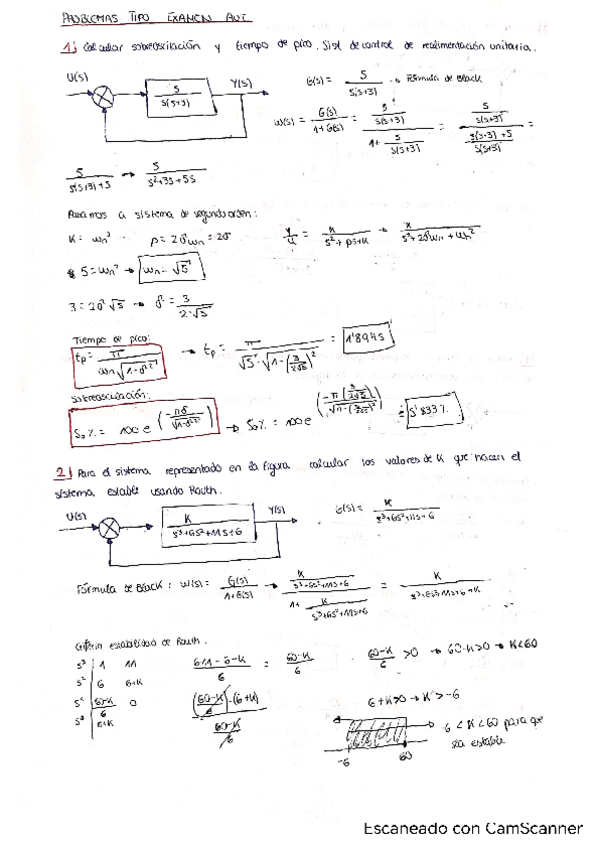 PROBLEMAS TIPO EXAMEN AUT.
1) Calcular sobreoscilación y tiempo de pico. Sist de control de realimentación unitaria.
U(s) 5 / s(s+3) Y(s)
G(s) = 5 / s(s+3) → Fórmula de Black
W(s) = G(s) / 1+G(s) = (5 / s(s+3)) / (1 + 5 / s(s+3)) = (5 / s(s+3)) / (s(s+3)+5 / s(s+3)) =
5 / s(s+3)+5 → 5 / s²+3s+5s
Pasamos a sistema de segundo orden:
K = wn² p = 2σwn = 2σ Y/U = K / s²+ps+K → K / s²+2σwn+wn²
5 = wn² → wn = √5
3 = 2σ√5 → σ = 3 / 2√5
Tiempo de pico:
tp = π / wn√1-σ² → tp = π / √5 · √1-(3/2√5)² = 1'894s
Sobreosculación:
So% = 100 e (-πσ / √1-σ²) → So% = 100 e (-π(3/2√5) / √1-(3/2√5)²) = 5'833%
2) Para el sistema representado en la figura calcular los valores de K que hacen el
sistema estable usando Routh.
U(s) K / s³+6s²+11s+6 Y(s)
G(s) = K / s³+6s²+11s+6
Fórmula de Black: W(s) = G(s) / 1+G(s) → (K / s³+6s²+11s+6) / (1 + K / s³+6s²+11s+6) = K / s³+6s²+11s+6+K
Criterio estabilidad de Routh.
s³ 1 11
s² 6 6+K
s¹ 60-K / 6 0
s⁰ 6+K
6·11-6-K / 6 = 60-K / 6
(60-K / 6)·(6+K) / (60-K / 6)
60-K / 6 >0 → 60-K>0 → K<60
6+K>0 → K>-6
-6 60
-6 < K < 60 para que
sea estable
Escaneado con CamScanner